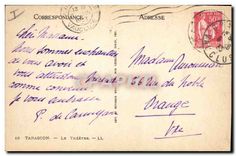 CORRESPONDANCE
ADRESSE
Chère Madame
Nous sommes enchantées
de vous avoir et
vous attendons
comme convenu.
je vous embrasse
P. de
Madame
56 rue du Noble
Orange
Vse
50
10 TARASCON. - LE THÉATRE. - LL